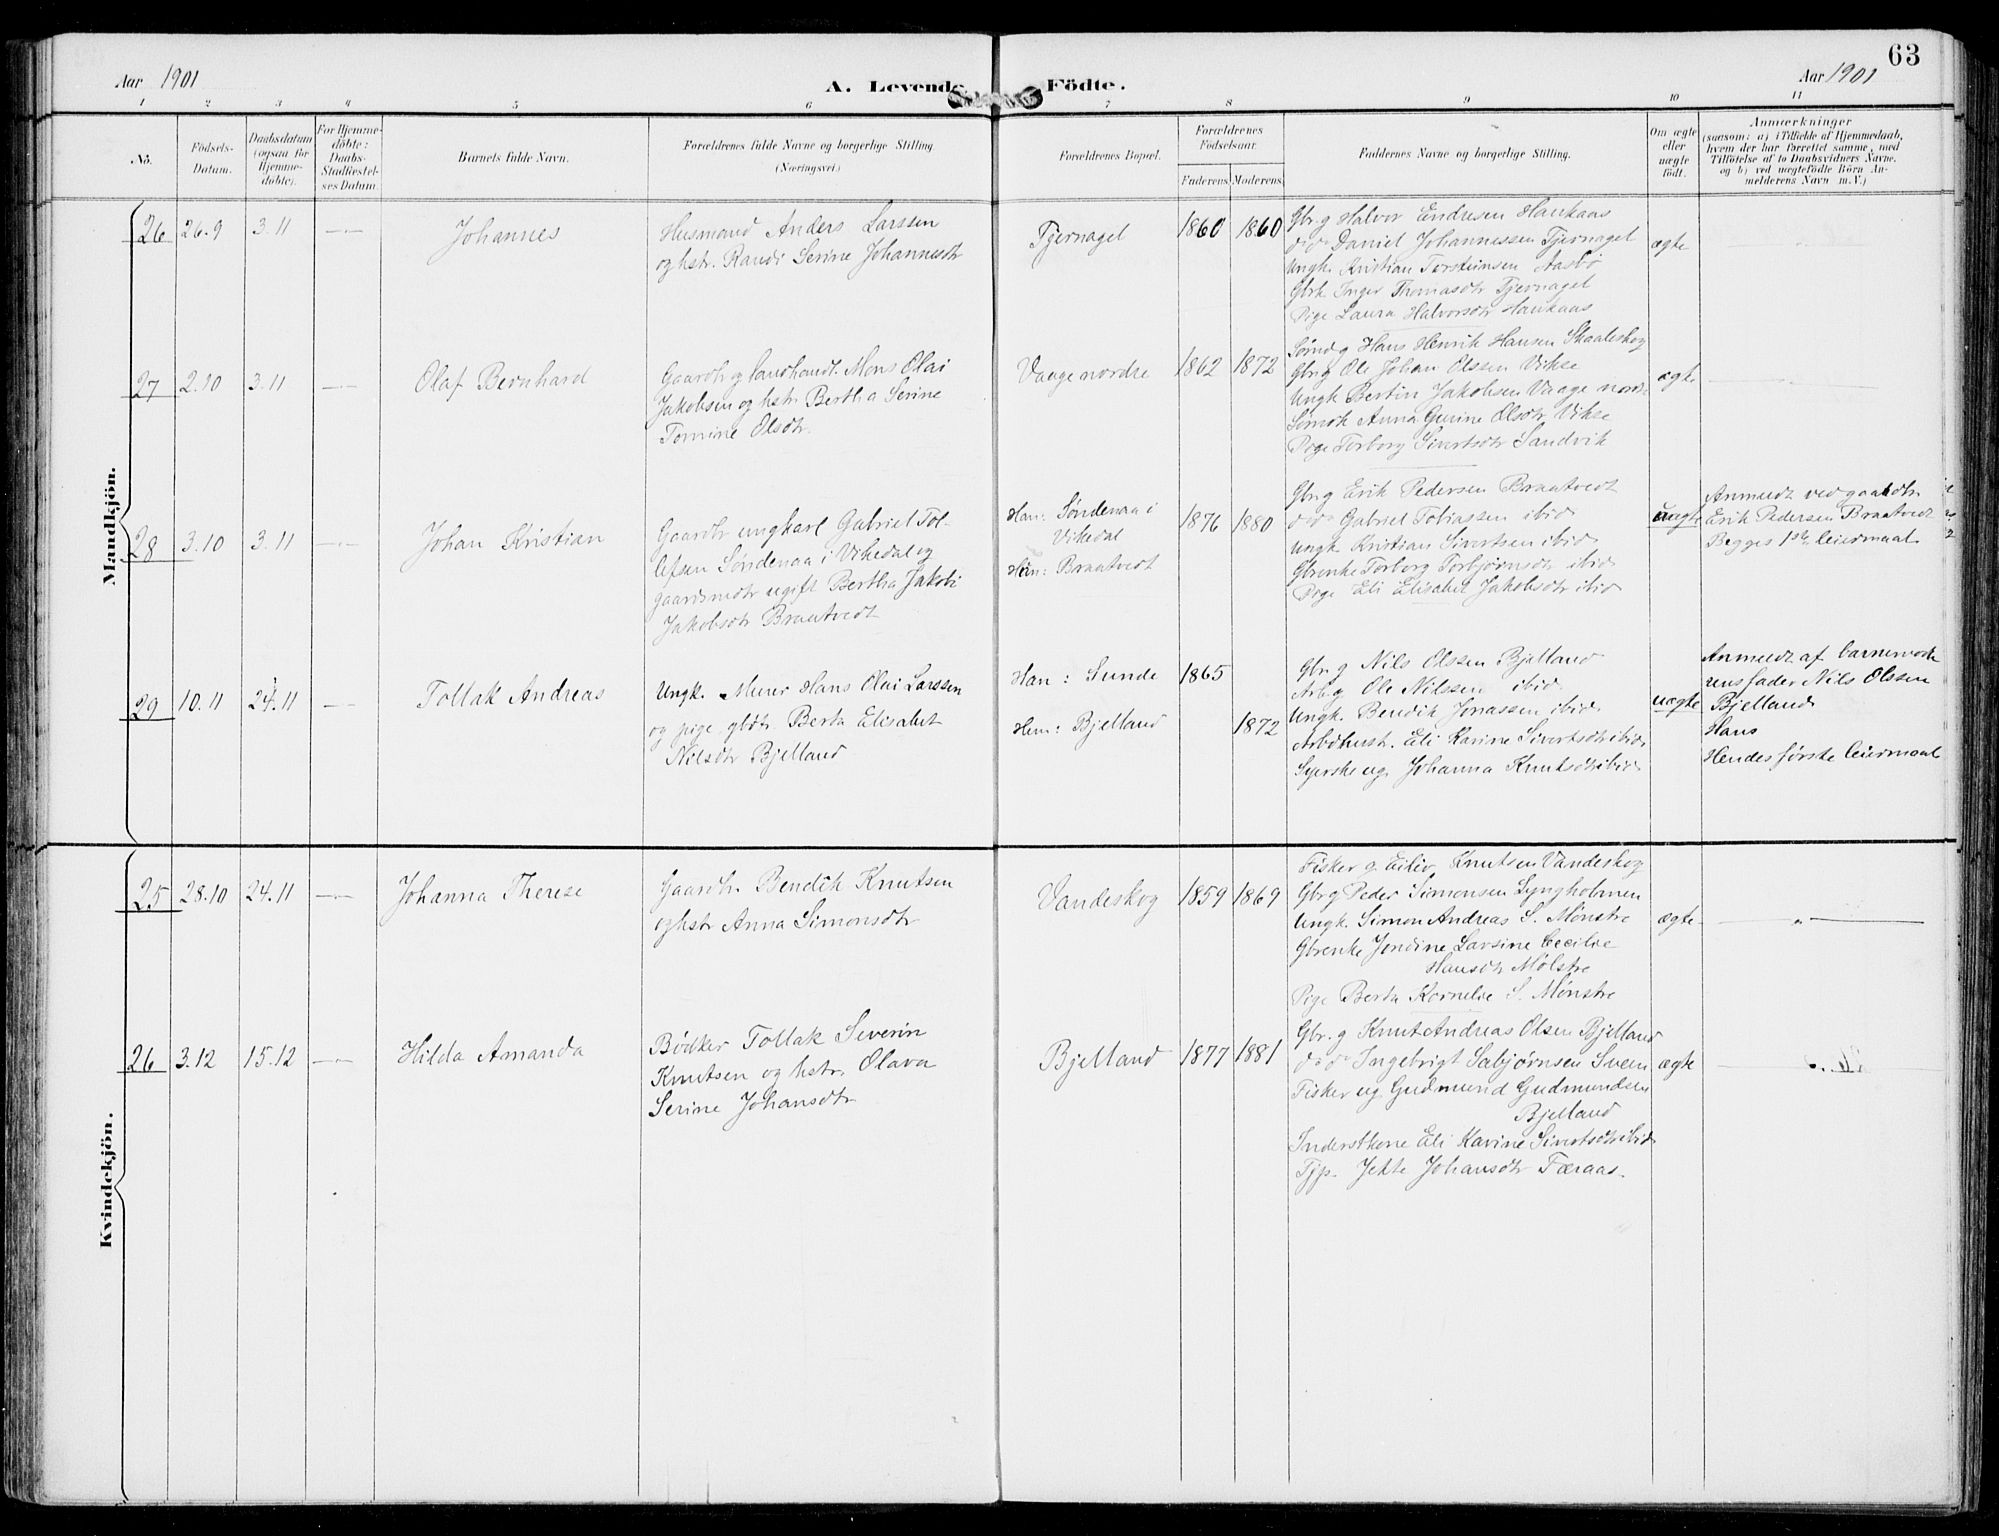 63
Aar 1901
A. Levende Födte.
Aar 1901
1 2 3 4 5 6 7 8 9 10 11
No.
Födsels-
Datum.
Daabsdatum
(ogsaa for
Hjemme-
döbte).
For Hjemme-
döbte:
Daabs-
Stadfæstel-
ses Datum.
Barnets fulde Navn.
Forældrenes fulde Navne og borgerlige Stilling
(Næringsvei.)
Forældrenes Bopæl.
Forældrenes
Födselsaar.
Faderens.
Moderens.
Faddernes Navne og borgerlige Stilling.
Om ægte
eller
uægte
födt.
Anmærkninger
(saasom: a) i Tilfælde af Hjemmedaab,
hvem der har forrettet samme, med
Tilföielse af to Daabsvidners Navne.
og b) ved uægtefödte Börn An-
melderens Navn m.V.)
Mandkjön.
26
26.9
3.11
Johannes
Husmand Anders Larssen
og hstr. Randi Serine Johannesdtr
Tjernagel
1860
1860
Gbr.g Halvor Endresen Haukaas
do do Daniel Johannessen Tjernagel
Ungk. Kristian Torsteinsen Aasbø
Gbrk Inger Thomasdtr Tjernagel
Pige Laura Halvorsdtr Haukaas
ægte
27
2.10
3.11
Olaf Bernhard
Gaardbr og landhandl. Mons Olai
Jakobsen og hstr Bertha Serine
Tomine Olsdtr.
Vaage nordre
1862
1872
Hans Henrik Hansen Skaaleskog
Gbr.g Ole Johan Olssen Vikse
Ungk Bertin Jakobsen Vaage nord.
Anna Gurine Olsdtr Vikse
Pige Torborg Sivertsdtr Sandvik
ægte
28
3.10
3.11
Johan Kristian
Gaardbr ungkarl Gabriel Tol-
lefsen Søndenaa i Vikedal og
gaardmdtr ugift Bertha Jakobi
Jakobsdtr Braatvedt
Han: Søndenaa i
Vikedal
Hun: Braatvedt
1876
1880
Gbr.g Erik Pedersen Braatvedt
do do Gabriel Tobiassen ibid
Ungk Kristian Sivertsen ibid
Gbrenke Torborg Torbjørnsdtr ibid
Pige Eli Elisabet Jakobsdtr ibid
uægte
Anmeldt ved gaardbr.
Erik Pedersen Braatvedt
Begges 1ste leiermaal
29
10.11
24.11
Tollak Andreas
Ungk. Murer Hans Olai Larssen
og pige gbdtr Berta Elisabet
Nilsdtr Bjelland
Han: Sunde
Hun: Bjelland
1865
1872
Gbr.g Nils Olssen Bjelland
Arb.g Ole Nilssen ibid.
Ungk. Bendik Jonassen ibid.
Arbdhustr. Eli Karine Sivertsdtr ibid.
Syerske ug. Johanna Knutsdtr ibid
uægte
Anmeldt af barnemode
rens fader Nils Olssen
Bjelland
Hans
Hendes første leiermaal
Kvindekjön.
25
28.10
24.11
Johanna Therese
Gaardbr. Bendik Knutsen
og hstr Anna Simonsdtr
Vandeskog
1859
1869
Fisker g. Eiliv Knutsen Vandeskog
Gbr.g Peder Simonsen Lyngholmen
Ungk. Simon Andreas S. Mønstre
Gbrenke Jondine Larsine Cecilie
Hansdtr Mølstre
Pige Berta Kornelie S. Mønstre
ægte
26
3.12
15.12
Hilda Amanda
Bødker Tollak Severin
Knutsen og hstr. Olava
Serine Johansdtr
Bjelland
1877
1881
Gbr.g Knut Andreas Olsen Bjelland
do do Ingebrigt Sabjørnsen Sveen
Fisker ug Gudmund Gudmundsen
Bjelland
Inderstkone Eli Karine Sivertsdtr ibid
Tjp. Jette Johansdtr Færaas.
ægte